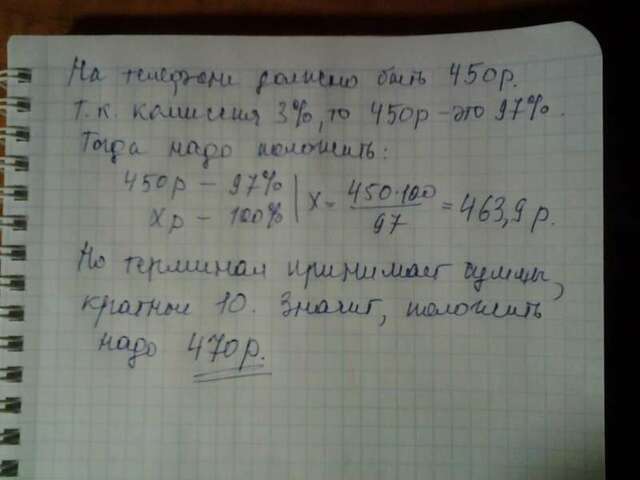 На телефоне должно быть 450р.
Т.к. комиссия 3%, то 450р - это 97%.
Тогда надо положить:
450р - 97% | x = 450·100/97 = 463,9 р.
Xр - 100%
Но терминал принимает суммы,
кратные 10. Значит, положить
надо 470р.